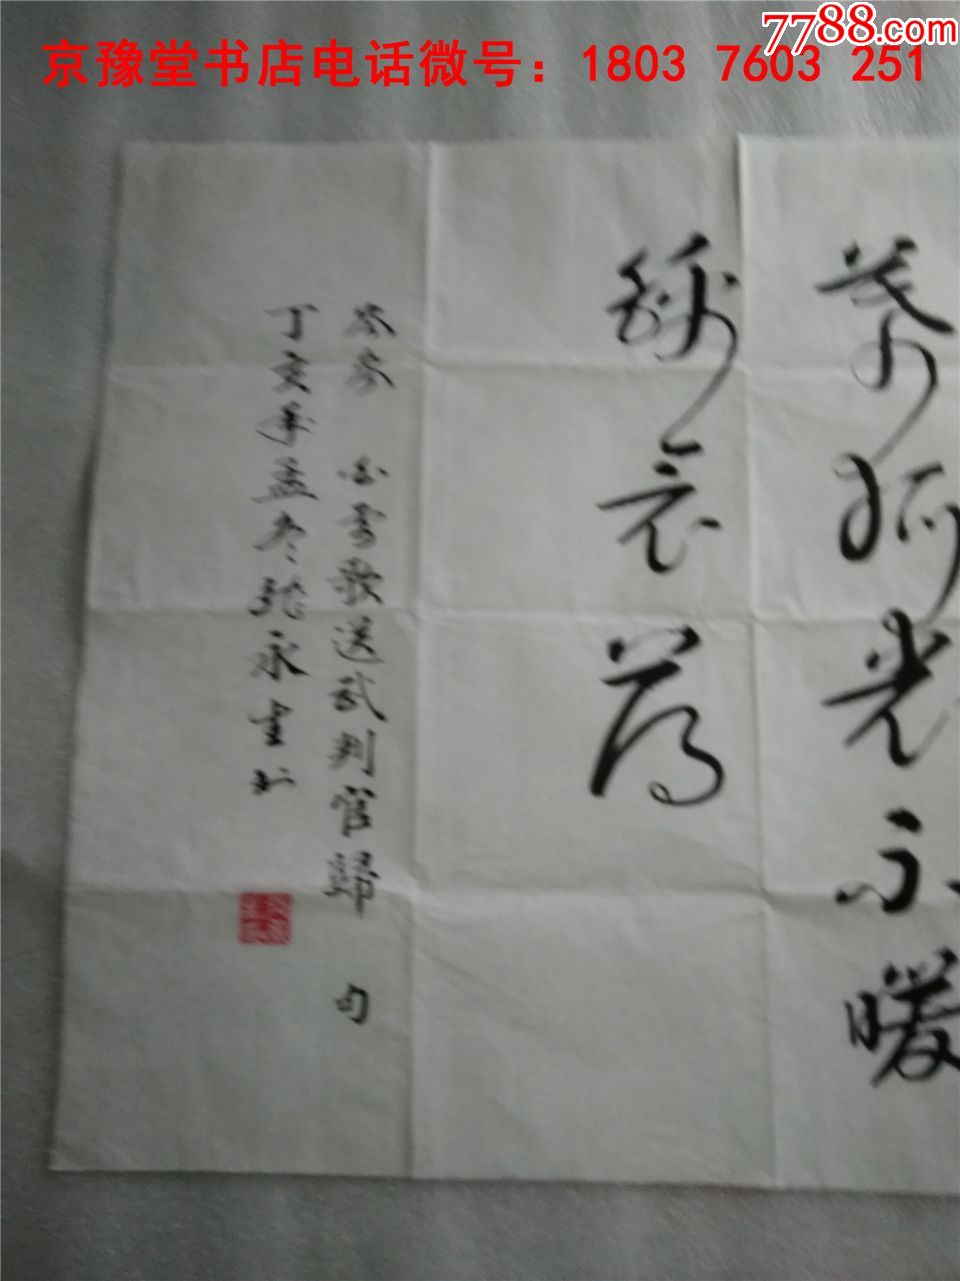 7788.com
京豫堂书店电话微号：1803 7603 251
幕孤裘不暖
锦衾薄
岑参 白雪歌送武判官歸 句
丁亥年孟冬 永